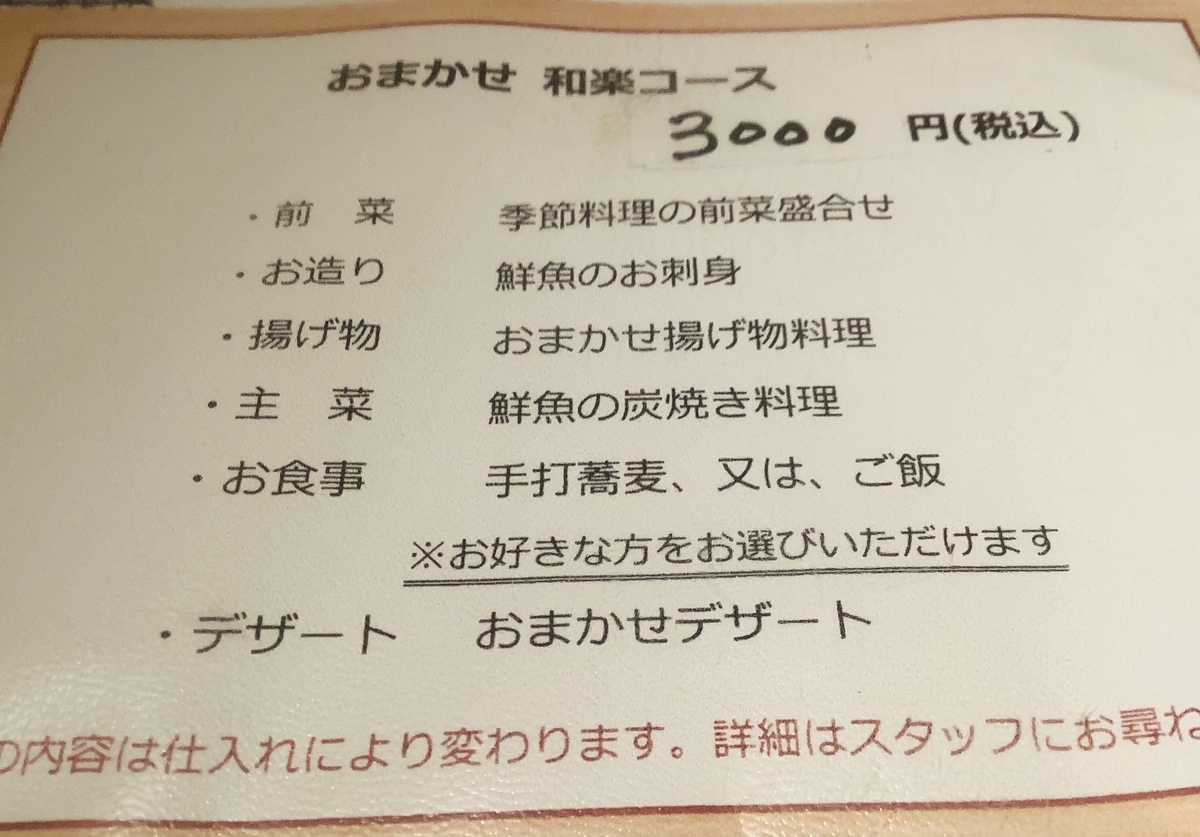 おまかせ 和楽コース
3000 円(税込)
・前　菜　季節料理の前菜盛合せ
・お造り　鮮魚のお刺身
・揚げ物　おまかせ揚げ物料理
・主　菜　鮮魚の炭焼き料理
・お食事　手打蕎麦、又は、ご飯
※お好きな方をお選びいただけます
・デザート　おまかせデザート
の内容は仕入れにより変わります。詳細はスタッフにお尋ね